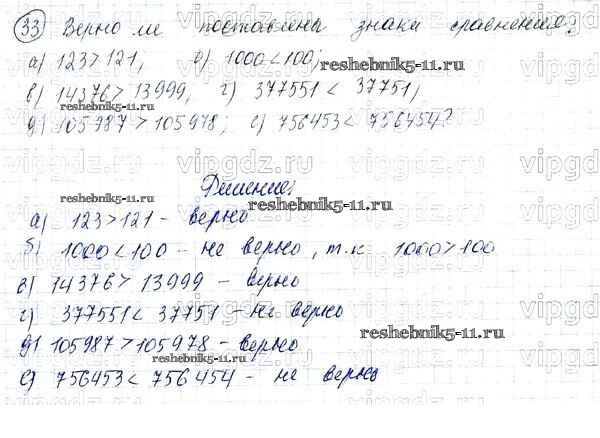 33 Верно ли поставлены знаки сравнения:
а) 123>121, б) 1000<100;
reshebnik5-11.ru
в) 14376>13999, г) 377551<37751,
reshebnik5-11.ru
д) 105987>105978; е) 756453<756454?
Решение.
reshebnik5-11.ru
reshebnik5-11.ru
а) 123>121 - верно
б) 1000<100 - не верно, т.к 1000>100
в) 14376>13999 - верно
г) 377551<37751 - не верно
reshebnik5-11.ru
д) 105987>105978 - верно
reshebnik5-11.ru
е) 756453<756454 - не верно
vipgdz.ru